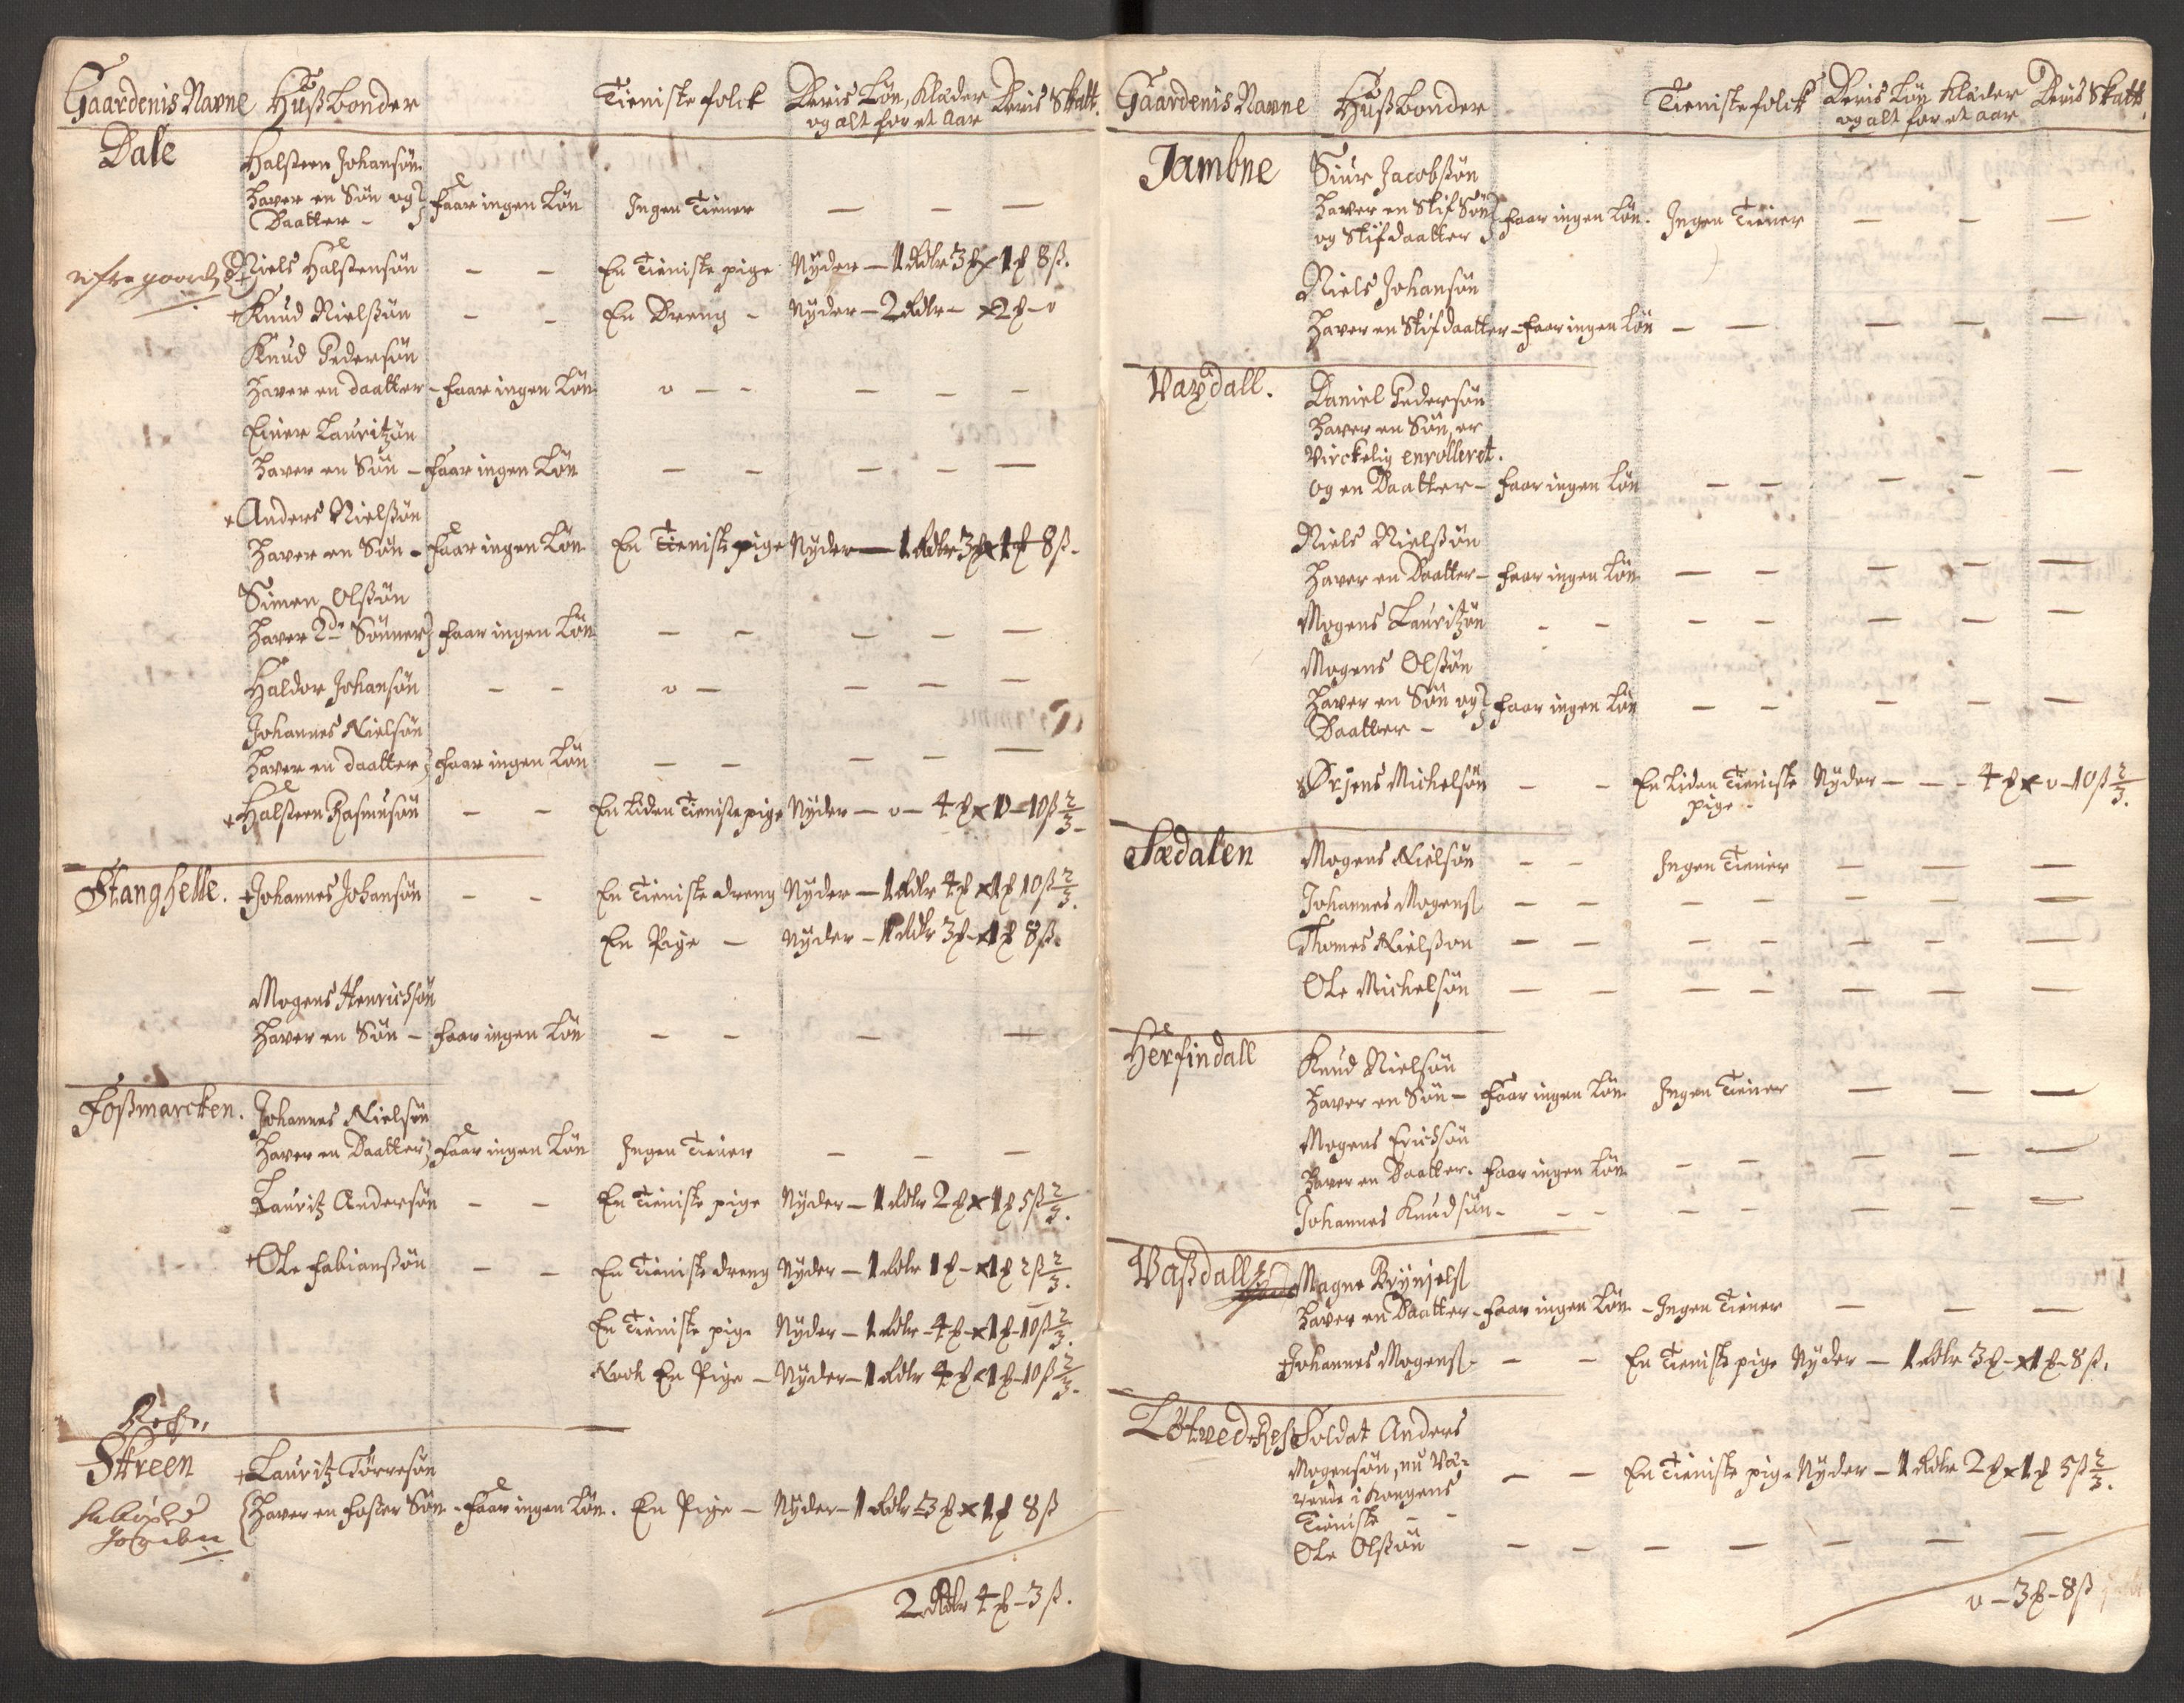 Gaardenis Navne Hußbonder Tieniste folck Deris Løn, Klæder Deris Skatt.
og alt for et Aar
Dale Halsteen Johansøn
Haver en Søn og faar ingen Løn Ingen Tiener — — —
Daatter –
Niels Halstensøn – – En Tieniste pige Nyder — 1 Rdlr 3 ꝸ x 1 ꝸ 8 ß.
+Knud Nielßøn – – En Dreng – Nyder – 2 Rdlr – x 2 ꝸ – o
Knud Pedersøn
Haver en daatter – faar ingen Løn o – – — – –
Einer Lauritzøn
Haver en Søn – faar ingen Løn — – — – —
+Anders Nielßøn
Haver en Søn – faar ingen Løn En Tieniste pige Nyder — 1 Rdlr 3 ꝸ x 1 ꝸ 8 ß.
Simen Olßøn
Haver 2de Sønner faar ingen Løn — – — – —
Haldor Johansøn – – o – — – —
Johannes Nielsøn
Haver en daatter faar ingen Løn – – – – —
+Halsteen Rasmusøn – – En Liden Tieniste pige Nyder – o – 4 ꝸ x o – 10 ß 2/3.
Stanghelle. +Johannes Johansøn – – En Tieniste dreng Nyder — 1 Rdlr 4 ꝸ x 1 ꝸ 10 ß 2/3.
En Pige – Nyder – 1 Rdlr 3 ꝸ – x 1 ꝸ 8 ß.
Mogens Henrichsøn
Haver en Søn – faar ingen Løn – – — —
Foßmarcken. Johannes Nielsøn
Haver en Daatter faar ingen Løn Ingen Tiener – – –
Lauritz Andersøn – – En Tieniste pige Nyder – 1 Rdlr 2 ꝸ x 1 ꝸ 5 ß 2/3.
+Ole Fabianßøn – – En Tieniste dreng Nyder – 1 Rdlr 1 ꝸ – x 1 ꝸ 2 ß 2/3.
En Tieniste pige Nyder – 1 Rdlr – 4 ꝸ – x 1 ꝸ – 10 ß 2/3.
Noch En Pige – Nyder – 1 Rdlr 4 ꝸ x 1 ꝸ – 10 ß 2/3.
Skreen +Lauritz Tørresøn
Haver en foster Søn – faar ingen Løn. En Pige – Nyder – 1 Rdlr 3 ꝸ x 1 ꝸ 8 ß
2 Rdlr 4 ꝸ – 3 ß.
Gaardenis Navne Hußbonder Tienistefolck Deris Løn Klæder Deris Skatt.
og alt for et aar
Jambne Siur Jacobßøn
Haver en Stif Søn faar ingen Løn. Ingen Tiener — – —
og Stifdaatter
Niels Johansøn
Haver en Stifdaatter – faar ingen Løn – — — — —
Daniel Pedersøn
Haver en Søn, er
Virckelig enrolleret.
og en Daatter – faar ingen Løn – – – – —
Niels Nielßøn
Haver en Daatter – faar ingen Løn — – — – —
Mogens Lauritzøn – – – – — — —
Mogens Olßøn
Haver en Søn og faar ingen Løn – – – – —
Daatter –
Ørjens Michelsøn – – En Liden Tieniste Nyder – – – 4 ꝸ x o – 10 ß 2/3.
pige –
Sædalen Mogens Nielsøn – – Ingen Tiener – — —
Johannes Mogens – – – – – – —
Thomes Nielßøn – – – – – – —
Ole Michelsøn — – — – — – —
Herfindall Knud Nielsøn
Haver en Søn – faar ingen Løn Ingen Tiener — – —
Mogens Erichsøn
Haver en Daatter. faar ingen Løn – – – – —
Johannes Knudsøn – – – – – — – —
Vaßdall Magne Brynjels
Haver en Daatter – faar ingen Løn – Ingen Tiener — – —
+Johannes Mogens – – – En Tieniste pige Nyder — 1 Rdlr 3 ꝸ – x 1 ꝸ – 8 ß.
Løtved Soldat Anders
Mogensøn, nu Væ-
rende i Kongens – — En Tieniste pige Nyder – 1 Rdlr 2 ꝸ x 1 ꝸ 5 ß 2/3.
Tieniste – –
Ole Olßøn – – – – – – —
o – 3 ꝸ – 8 ß